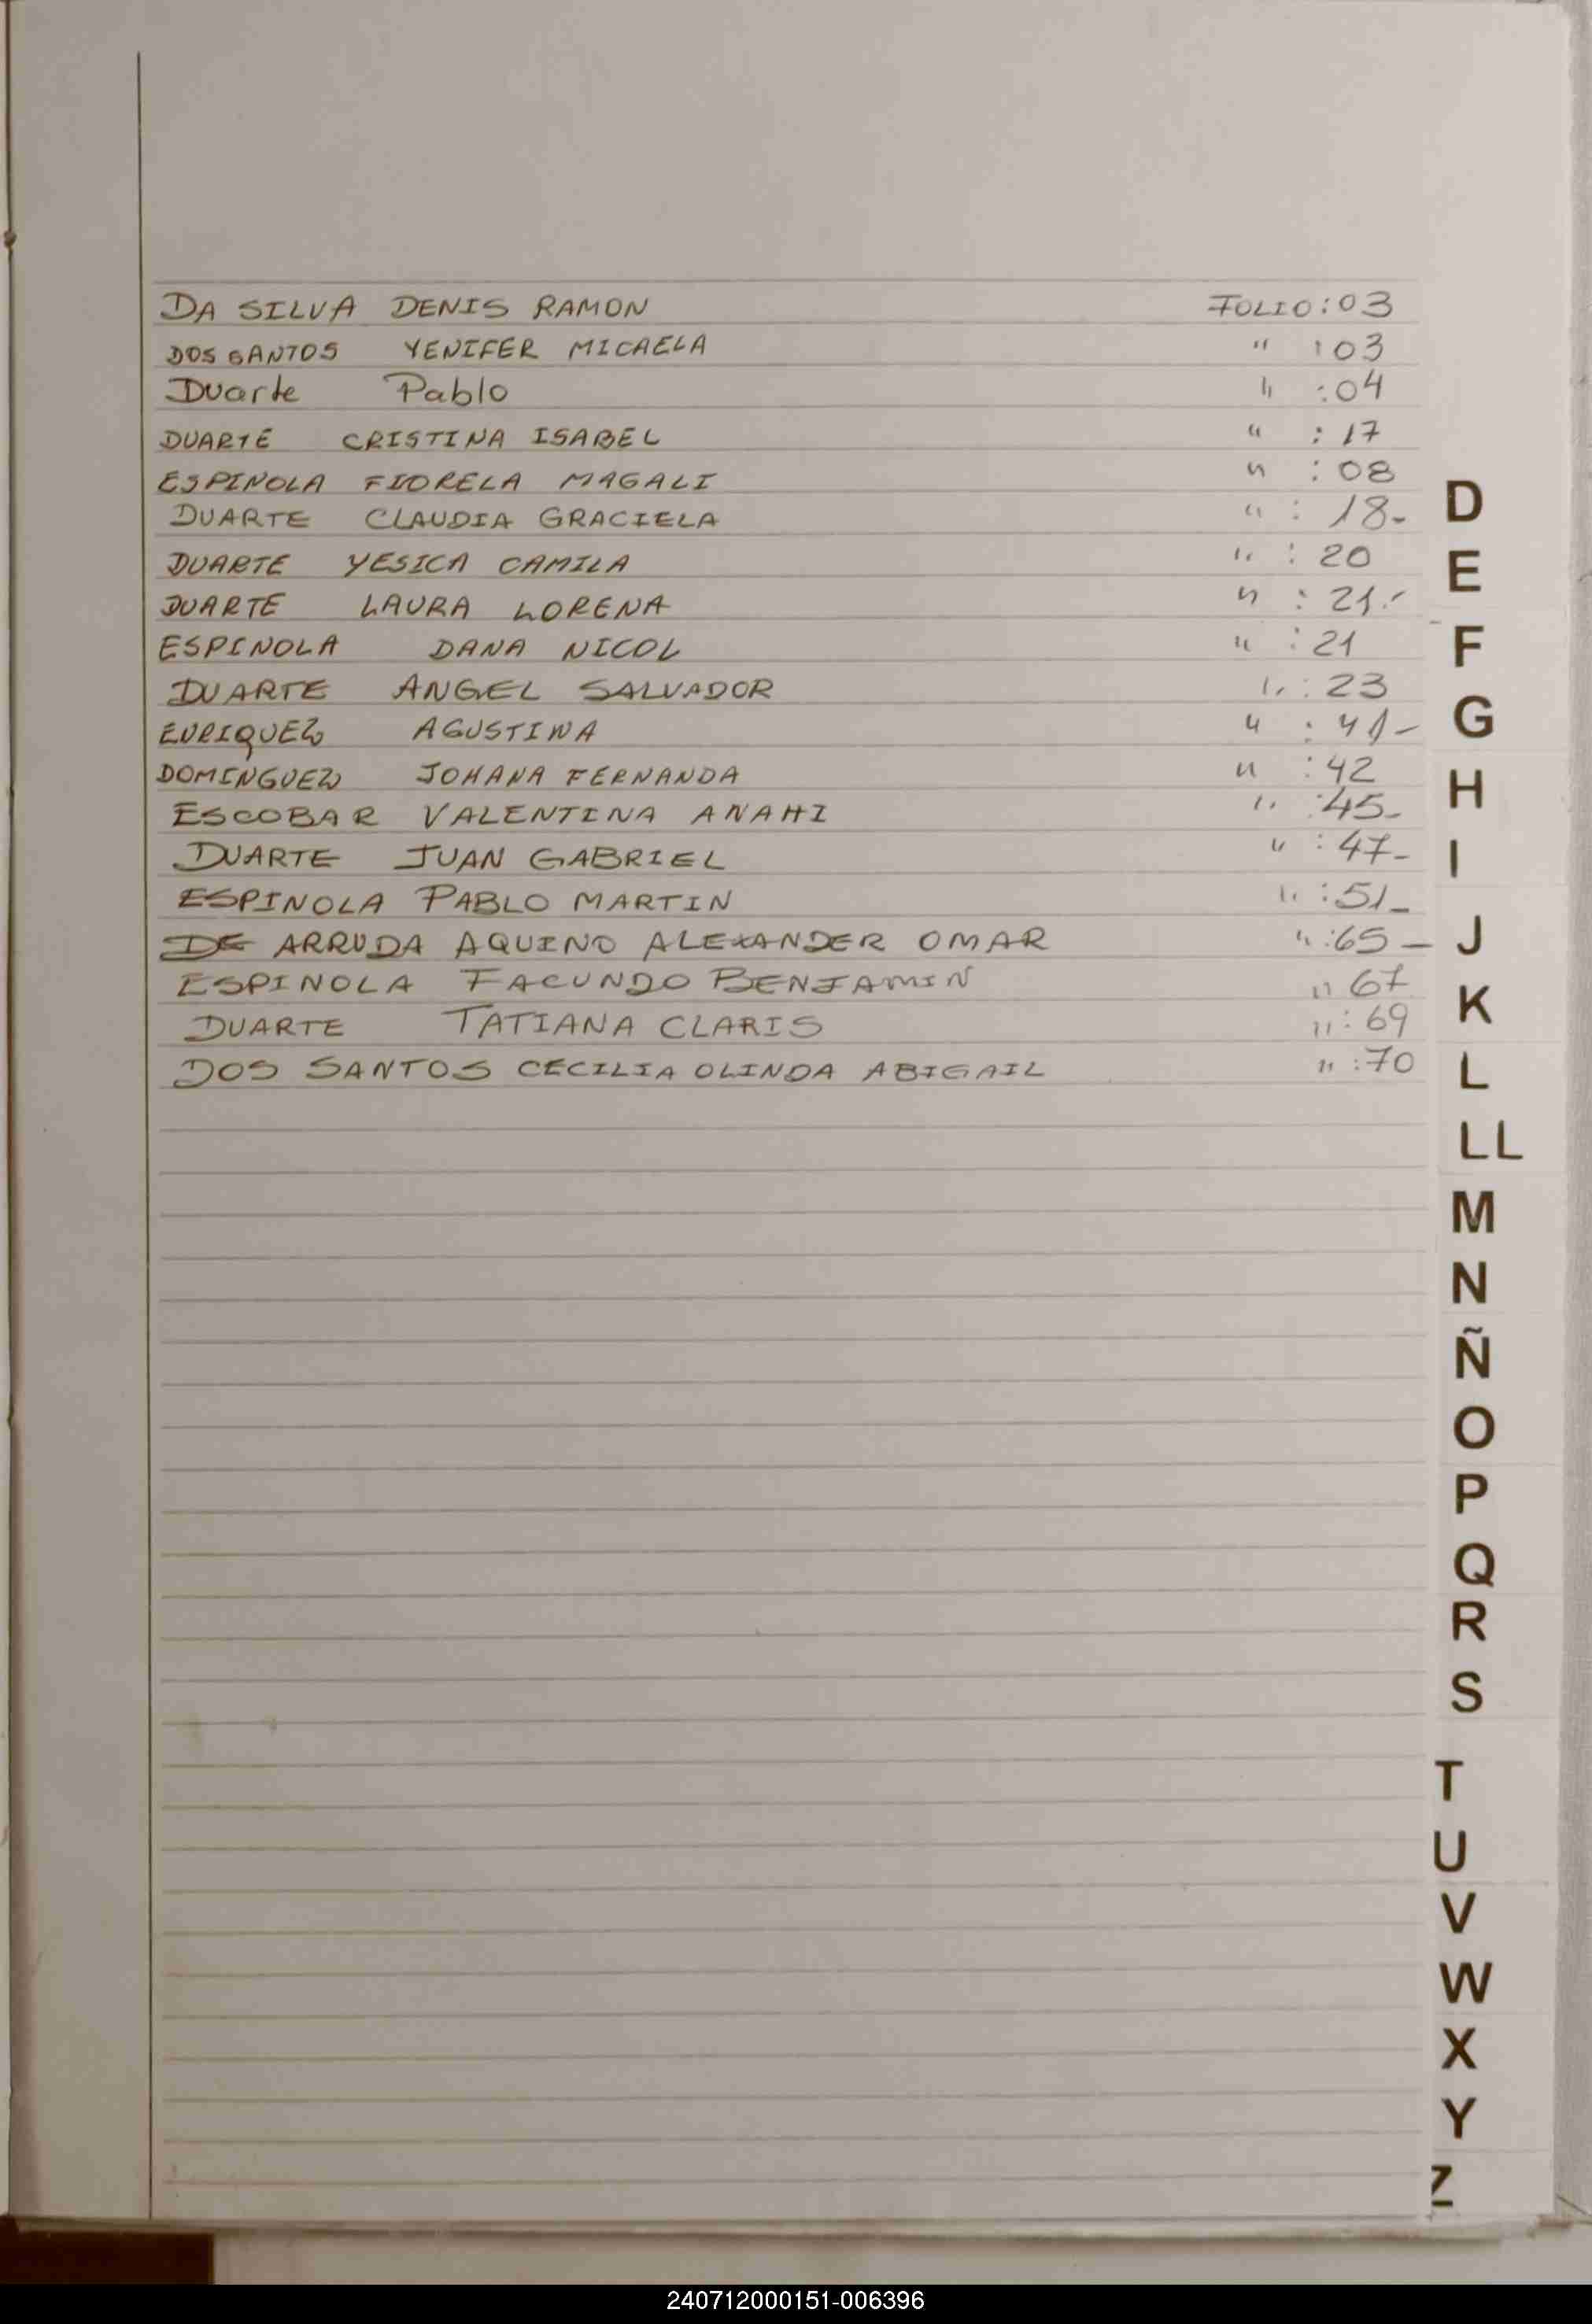 DA SILVA DENIS RAMON FOLIO:03
DOS SANTOS YENIFER MICAELA " :03
Duarte Pablo " :04
DUARTE CRISTINA ISABEL " :17
ESPINOLA FIORELA MAGALI " :08
DUARTE CLAUDIA GRACIELA " : 18-
DUARTE YESICA CAMILA " : 20
DUARTE LAURA LORENA " : 21.-
ESPINOLA DANA NICOL " :21
DUARTE ANGEL SALVADOR " : 23
ENRIQUEZ AGUSTINA " : 41-
DOMINGUEZ JOHANA FERNANDA " :42
ESCOBAR VALENTINA ANAHI " :45-
DUARTE JUAN GABRIEL " :47-
ESPINOLA PABLO MARTIN " :51-
DE ARRUDA AQUINO ALEXANDER OMAR " :65-
ESPINOLA FACUNDO BENJAMIN " 67
DUARTE TATIANA CLARIS " : 69
DOS SANTOS CECILIA OLINDA ABIGAIL " :70
D
E
F
G
H
I
J
K
L
LL
M
N
Ñ
O
P
Q
R
S
T
U
V
W
X
Y
Z
240712000151-006396